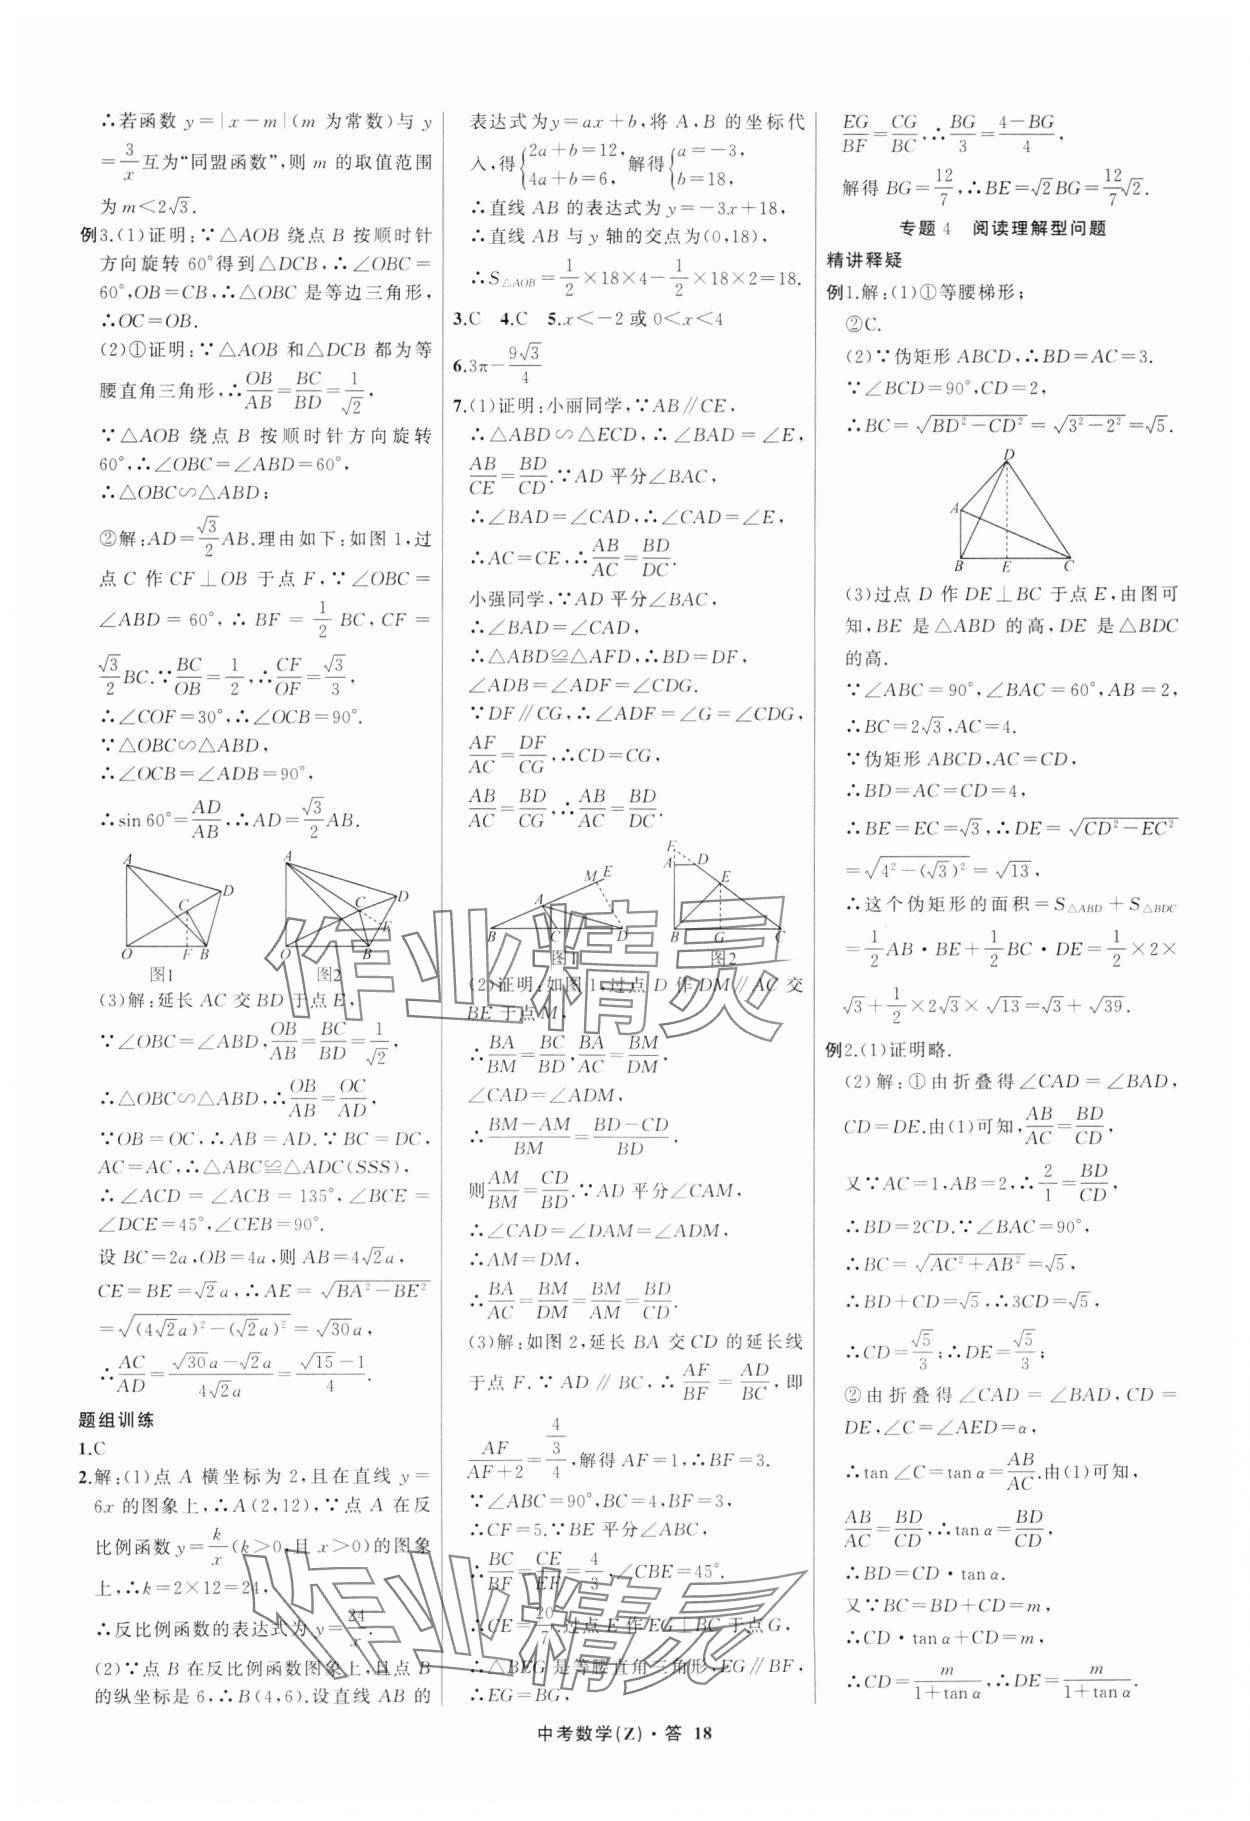 ∴若函数 y=|x-m|(m 为常数)与 y
=3/x互为“同盟函数”,则 m 的取值范围
为 m<2√3.
例3.(1)证明:∵△AOB 绕点 B 按顺时针
方向旋转 60°得到△DCB,∴∠OBC=
60°,OB=CB,∴△OBC 是等边三角形,
∴OC=OB.
(2)①证明:∵△AOB 和△DCB 都为等
腰直角三角形,∴OB/AB=BC/BD=1/√2,
∵△AOB 绕点 B 按顺时针方向旋转
60°,∴∠OBC=∠ABD=60°,
∴△OBC∽△ABD;
②解:AD=√3/2AB.理由如下:如图 1,过
点 C 作 CF⊥OB 于点 F,∵∠OBC=
∠ABD=60°,∴BF=1/2BC,CF=
√3/2BC.∵BC/OB=1/2,∴CF/OF=√3/3,
∴∠COF=30°,∴∠OCB=90°.
∵△OBC∽△ABD,
∴∠OCB=∠ADB=90°,
∴sin 60°=AD/AB,∴AD=√3/2AB.
A
D
C
O
F
B
图1
A
D
C
E
O
B
图2
(3)解:延长 AC 交 BD 于点 E,
∵∠OBC=∠ABD,OB/AB=BC/BD=1/√2,
∴△OBC∽△ABD,∴OB/AB=OC/AD,
∵OB=OC,∴AB=AD.∵BC=DC,
AC=AC,∴△ABC≌△ADC(SSS),
∴∠ACD=∠ACB=135°,∠BCE=
∠DCE=45°,∠CEB=90°.
设 BC=2a,OB=4a,则 AB=4√2a,
CE=BE=√2a,∴AE=√(BA²-BE²)
=√((4√2a)²-(√2a)²)=√30a,
∴AC/AD=(√30a-√2a)/(4√2a)=(√15-1)/4.
题组训练
1.C
2.解:(1)点 A 横坐标为 2,且在直线 y=
6x 的图象上,∴A(2,12),∵点 A 在反
比例函数 y=k/x(k>0,且 x>0)的图象
上,∴k=2×12=24,
∴反比例函数的表达式为 y=24/x.
(2)∵点 B 在反比例函数图象上,且点 B
的纵坐标是 6,∴B(4,6).设直线 AB 的
表达式为y=ax+b,将 A,B 的坐标代
入,得{2a+b=12, 4a+b=6, 解得{a=-3, b=18,
∴直线 AB 的表达式为 y=-3x+18,
∴直线 AB 与 y 轴的交点为(0,18),
∴S△AOB=1/2×18×4-1/2×18×2=18.
3.C 4.C 5.x<-2 或 0<x<4
6.3π-9√3/4
7.(1)证明:小丽同学,∵AB∥CE,
∴△ABD∽△ECD,∴∠BAD=∠E,
AB/CE=BD/CD.∵AD 平分∠BAC,
∴∠BAD=∠CAD,∴∠CAD=∠E,
∴AC=CE,∴AB/AC=BD/DC.
小强同学,∵AD 平分∠BAC,
∴∠BAD=∠CAD,
∴△ABD≌△AFD,∴BD=DF,
∠ADB=∠ADF=∠CDG.
∵DF∥CG,∴∠ADF=∠G=∠CDG,
AF/AC=DF/CG,∴CD=CG,
AB/AC=BD/CG,∴AB/AC=BD/DC.
E
M
A
B
C
D
图1
F
A
D
E
B
G
C
图2
(2)证明:如图 1,过点 D 作DM∥AC 交
BE 于点 M,
∴BA/BM=BC/BD,BA/AC=BM/DM,
∠CAD=∠ADM,
∴(BM-AM)/BM=(BD-CD)/BD,
则AM/BM=CD/BD.∵AD 平分∠CAM,
∴∠CAD=∠DAM=∠ADM,
∴AM=DM,
∴BA/AC=BM/DM=BM/AM=BD/CD.
(3)解:如图 2,延长 BA 交 CD 的延长线
于点 F.∵AD∥BC,∴AF/BF=AD/BC,即
AF/(AF+2)=(4/3)/4,解得 AF=1,∴BF=3.
∵∠ABC=90°,BC=4,BF=3,
∴CF=5.∵BE 平分∠ABC,
∴BC/BF=CE/EF=4/3,∠CBE=45°.
∴CE=20/7,过点 E 作 EG⊥BC 于点 G,
∴△BEG 是等腰直角三角形,EG∥BF,
∴EG=BG,
EG/BF=CG/BC,∴BG/3=(4-BG)/4,
解得 BG=12/7,∴BE=√2BG=12/7√2.
专题 4 阅读理解型问题
精讲释疑
例1.解:(1)①等腰梯形;
②C.
(2)∵伪矩形 ABCD,∴BD=AC=3.
∵∠BCD=90°,CD=2,
∴BC=√(BD²-CD²)=√(3²-2²)=√5.
D
A
B
E
C
(3)过点 D 作 DE⊥BC 于点 E,由图可
知,BE 是△ABD 的高,DE 是△BDC
的高.
∵∠ABC=90°,∠BAC=60°,AB=2,
∴BC=2√3,AC=4.
∵伪矩形 ABCD,AC=CD,
∴BD=AC=CD=4,
∴BE=EC=√3,∴DE=√(CD²-EC²)
=√(4²-(√3)²)=√13,
∴这个伪矩形的面积=S△ABD+S△BDC
=1/2AB·BE+1/2BC·DE=1/2×2×
√3+1/2×2√3×√13=√3+√39.
例2.(1)证明略.
(2)解:①由折叠得∠CAD=∠BAD,
CD=DE.由(1)可知,AB/AC=BD/CD,
又∵AC=1,AB=2,∴2/1=BD/CD,
∴BD=2CD.∵∠BAC=90°,
∴BC=√(AC²+AB²)=√5,
∴BD+CD=√5,∴3CD=√5,
∴CD=√5/3;∴DE=√5/3;
②由折叠得∠CAD=∠BAD,CD=
DE,∠C=∠AED=α,
∴tan∠C=tan α=AB/AC.由(1)可知,
AB/AC=BD/CD,∴tan α=BD/CD,
∴BD=CD·tan α.
又∵BC=BD+CD=m,
∴CD·tan α+CD=m,
∴CD=m/(1+tan α),∴DE=m/(1+tan α).
中考数学(Z)·答 18
作业精灵
作业精灵